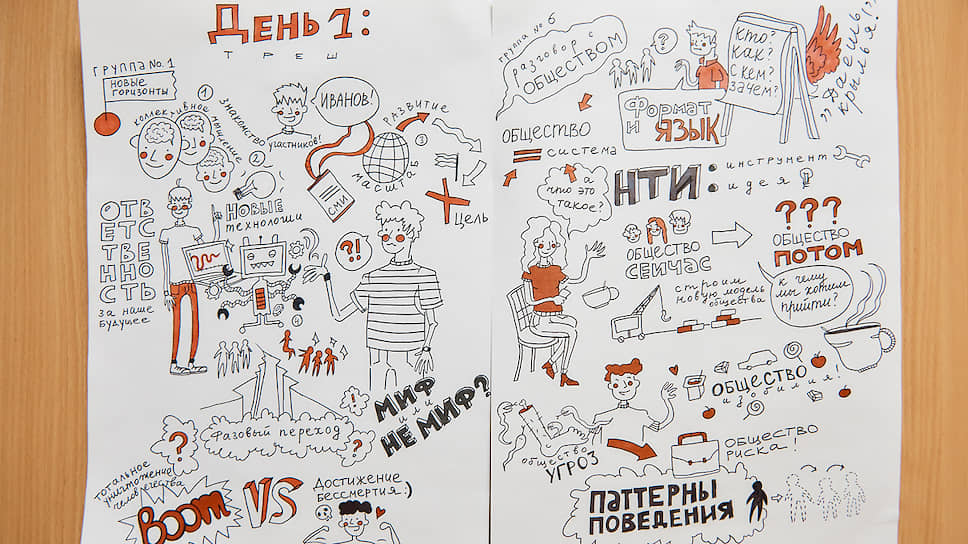 День 1:
ТРЕШ
ГРУППА №. 1
НОВЫЕ
ГОРИЗОНТЫ
1
коллективное
мышление
знакомство
участников!
2
ИВАНОВ!
СМИ
РАЗВИТИЕ
3
МАСШТАБ
Цель
ОТВ
ЕТС
ТВЕ
ННО
СТЬ
за наше
будущее
Новые
технологии
4
?!
МИФ
ИЛИ
НЕ МИФ?
?
Фазовый переход
!
?
тотальное
уничтожение
человечества
BOOM
VS
Достижение
бессмертия:)
группа № 6
разговор с
ОБЩЕСТВОМ
?
КТО?
КАК?
С КЕМ?
ЗАЧЕМ?
"Даешь
крылья"(?)
Формат
и ЯЗЫК
ОБЩЕСТВО
=
система
а
что это
такое?
НТИ:
инструмент
идея
ОБЩЕСТВО
СЕЙЧАС
???
ОБЩЕСТВО
ПОТОМ
строим
новую модель
общества
к чему
мы хотим
прийти?
ОБЩЕСТВО
изобилия!
общество
УГРОЗ
ОБЩЕСТВО
РИСКА!
ПАТТЕРНЫ
ПОВЕДЕНИЯ